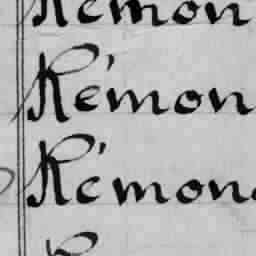 Rémon
Rémon
Rémon